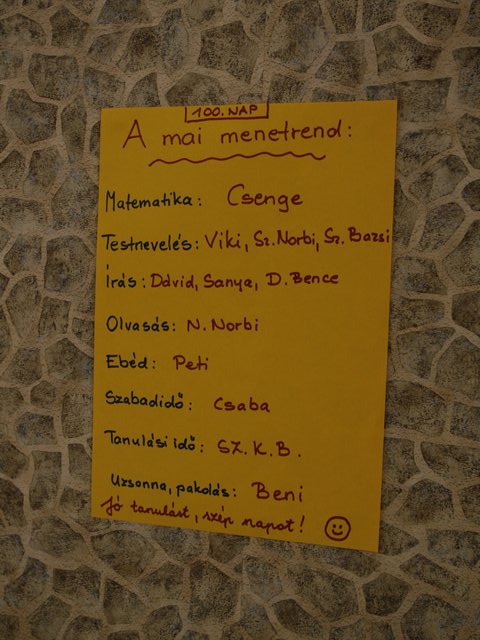 100. NAP
A mai menetrend:
Matematika: Csenge
Testnevelés: Viki, Sz. Norbi, Sz. Bazsi
Írás: Dávid, Sanya, D. Bence
Olvasás: N. Norbi
Ebéd: Peti
Szabadidő: Csaba
Tanulási idő: SZ. K. B.
Uzsonna, pakolás: Beni
Jó tanulást, szép napot!